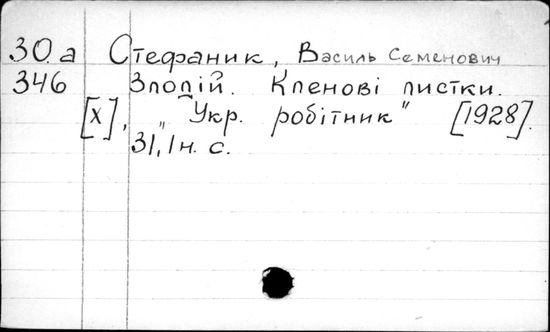 30.а Стефаник, Василь Семенович
346 Злодій. Кленові листки.
[х], „Укр. робітник" [1928].
31, 1 н. с.